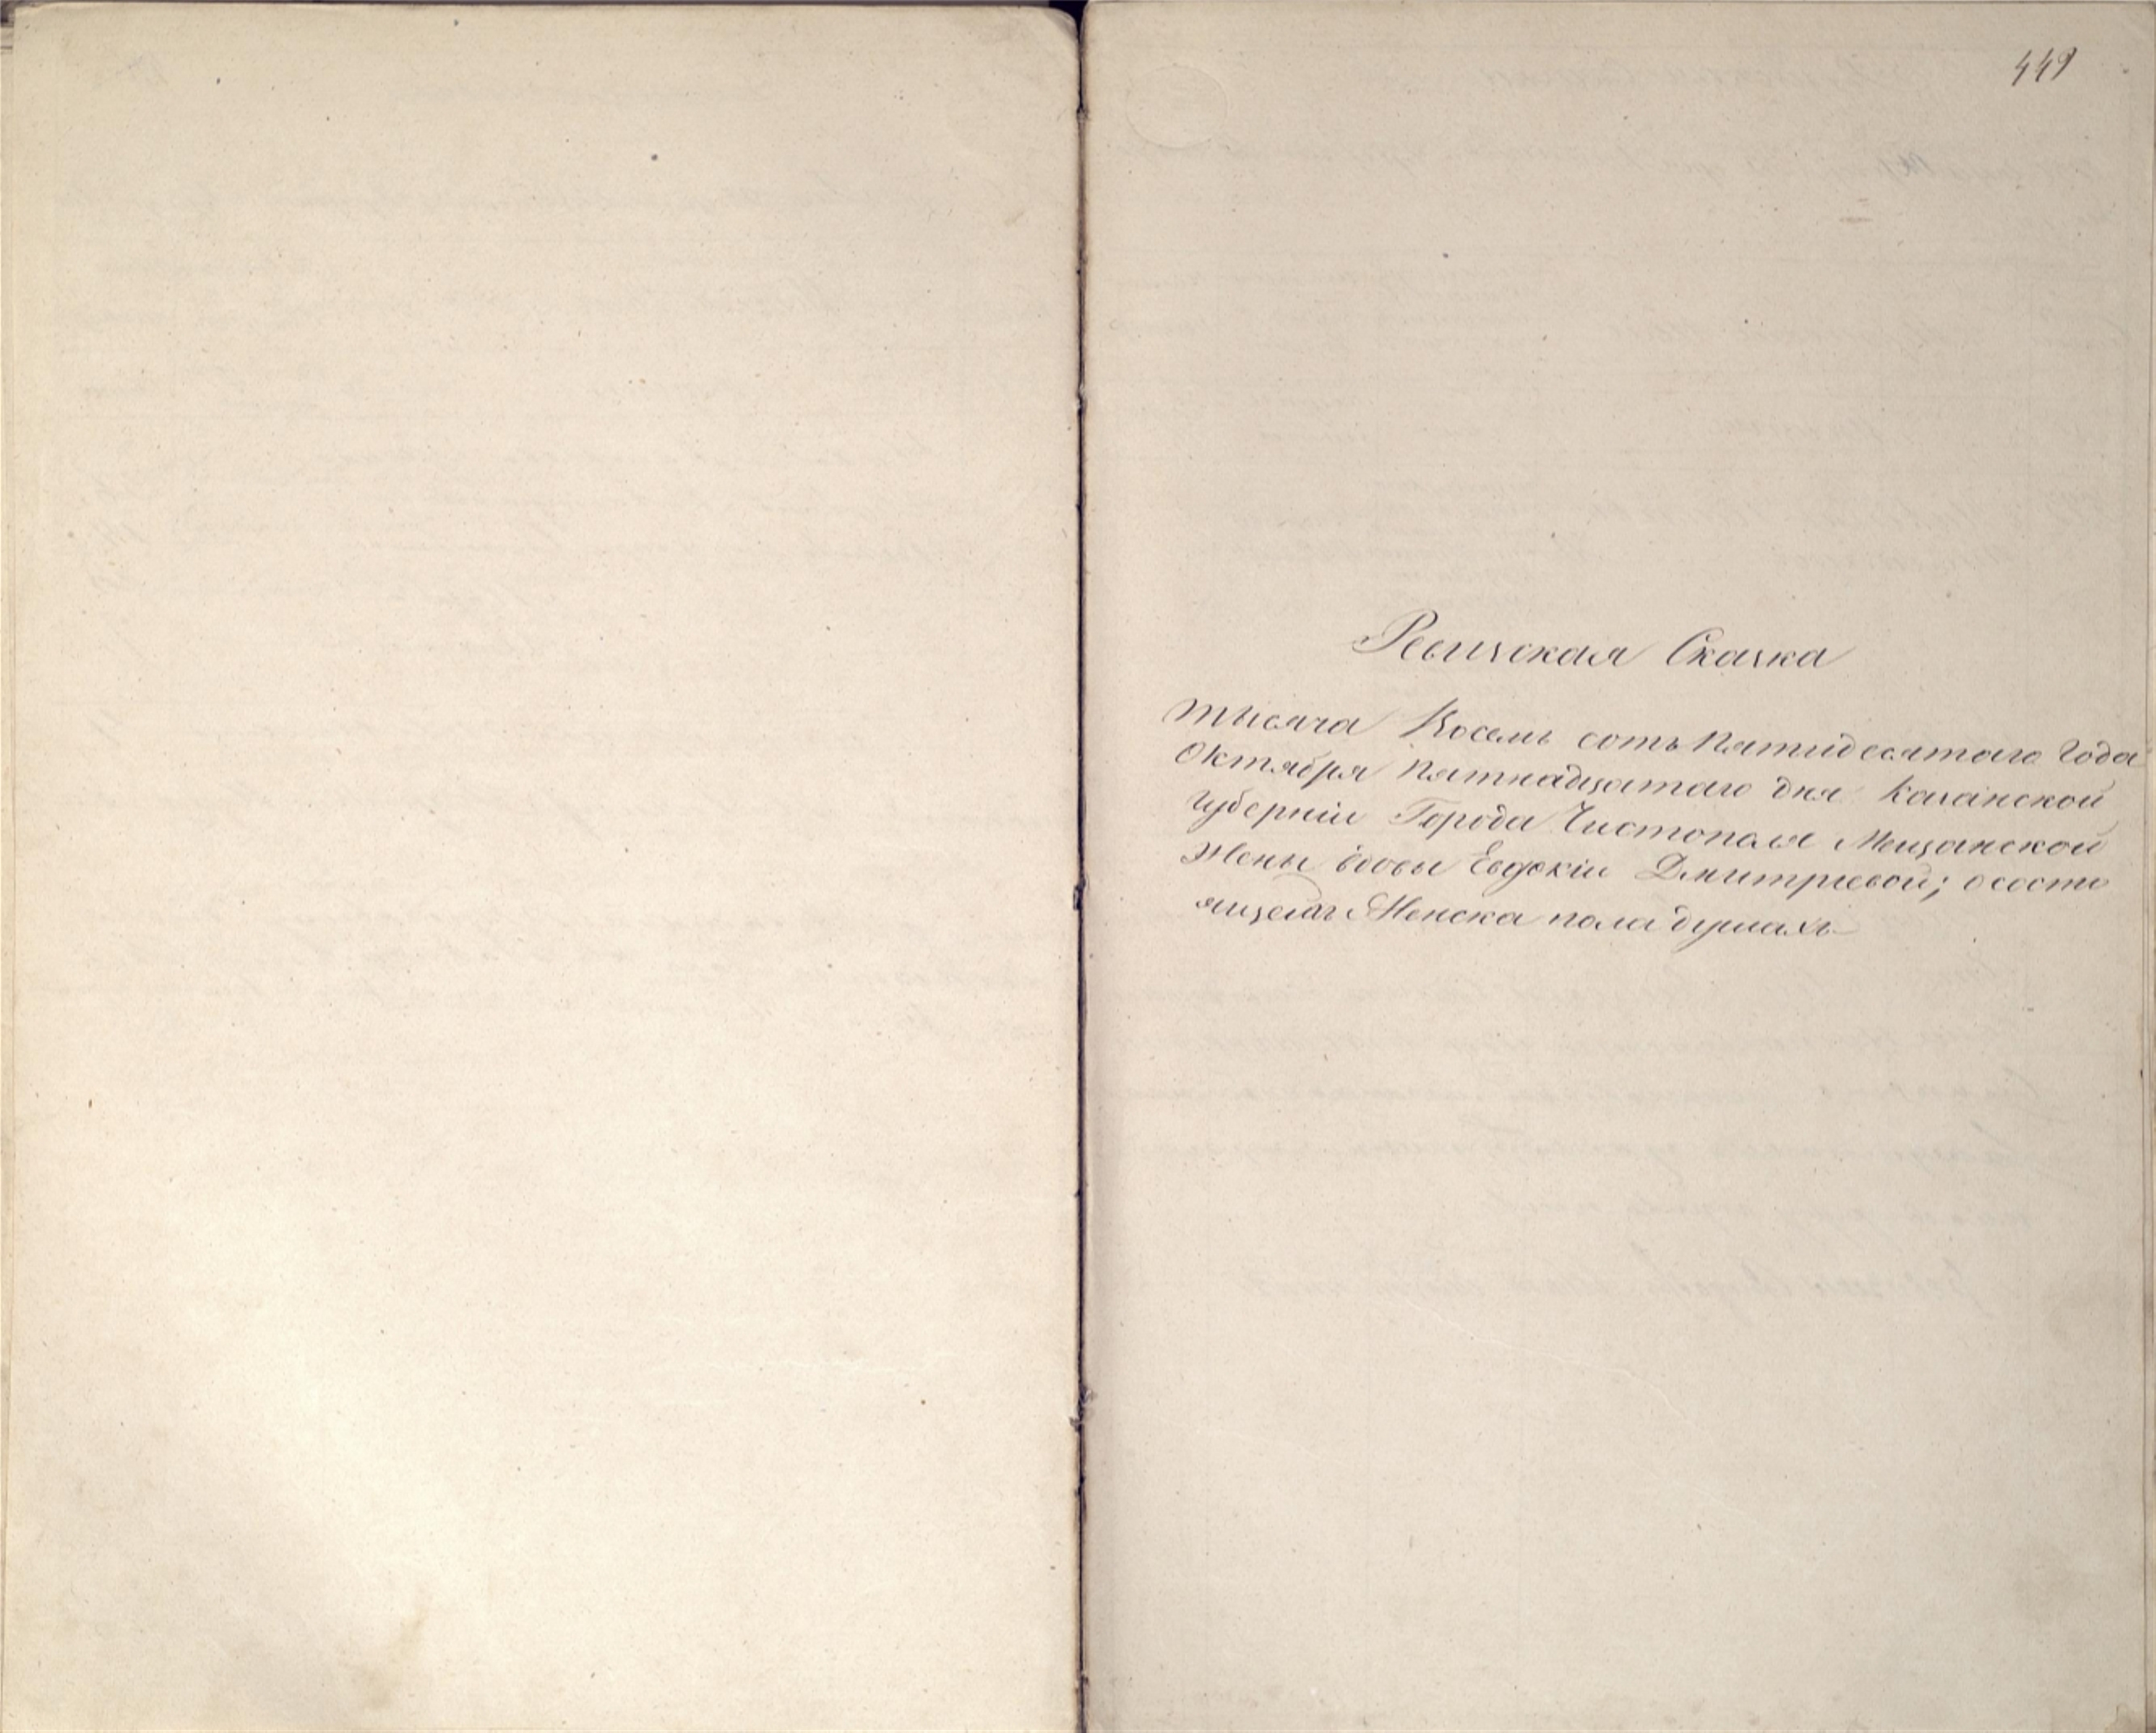 449
Ревизская Сказка
тысяча Восемь сотъ Пятидесятаго Года
Октября Пятнадцатаго дня Казанской
губерніи Города Чистополя Мещанской
Жены вдовы Евдокіи Дмитріевой; о состо
ящей Женска пола душахъ